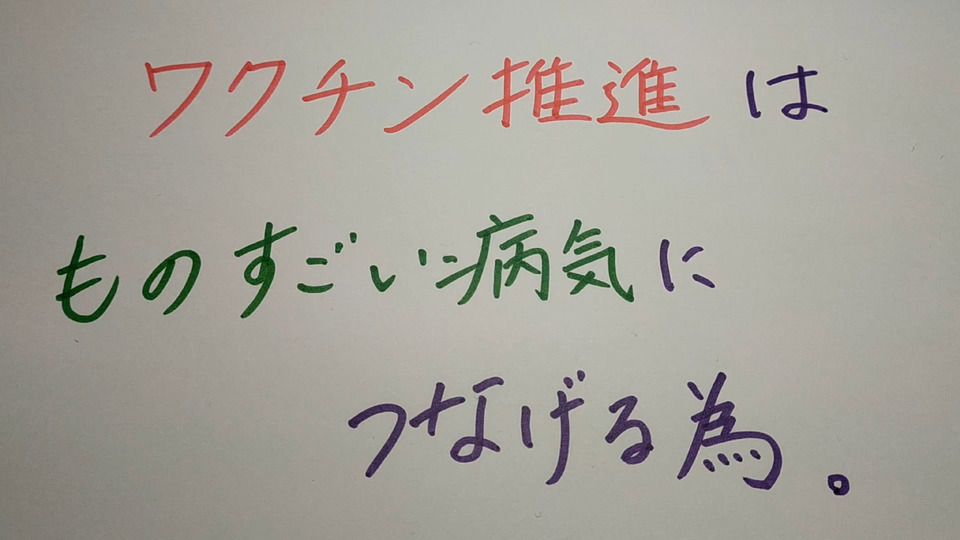 ワクチン推進は
ものすごい病気に
つなげる為。